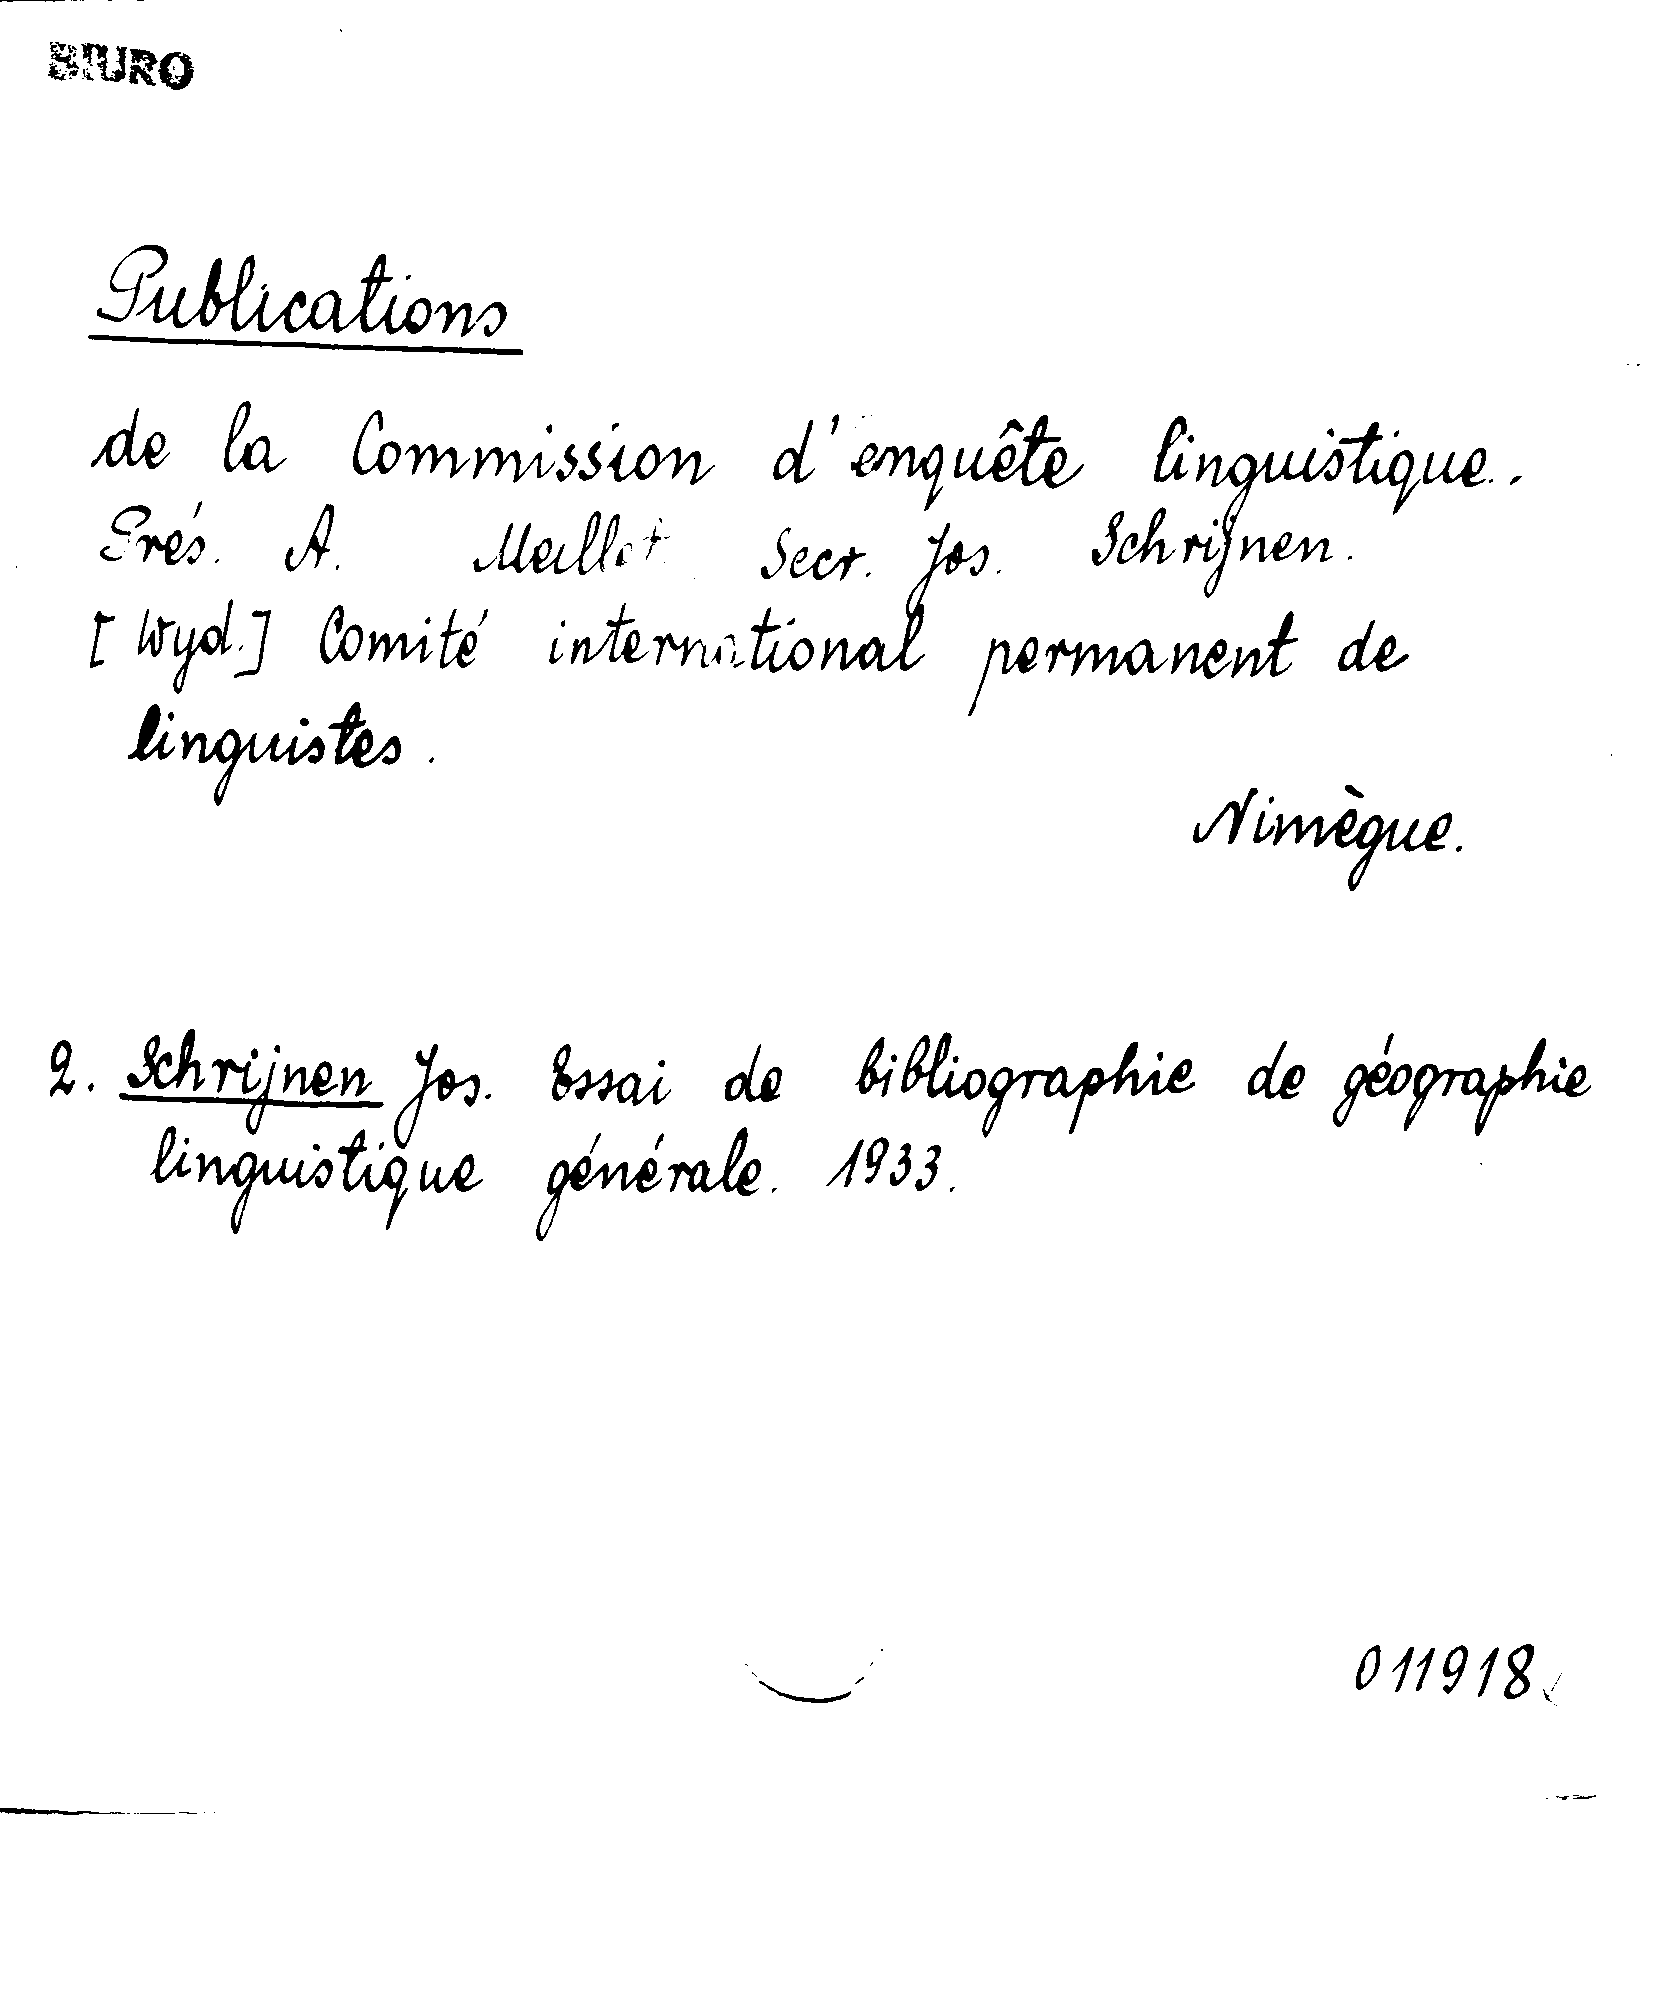 BIURO
Publications
de la Commission d'enquête linguistique.
Prés. A. Meillet Secr. Jos. Schrijnen.
[Wyd.] Comité international permanent de
linguistes.
Nimègue.
2. Schrijnen Jos. Essai de bibliographie de géographie
linguistique générale. 1933.
011918